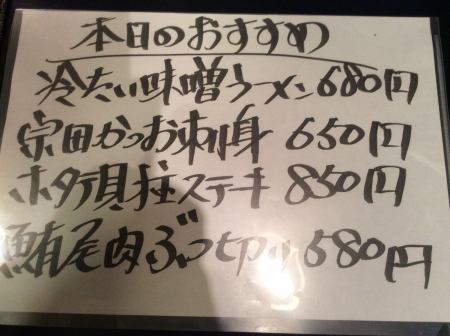 本日のおすすめ
冷たい味噌ラーメン 680円
宗田かつお刺身 650円
ホタテ貝柱ステキ 850円
鮪尾肉ぶつ切り 680円